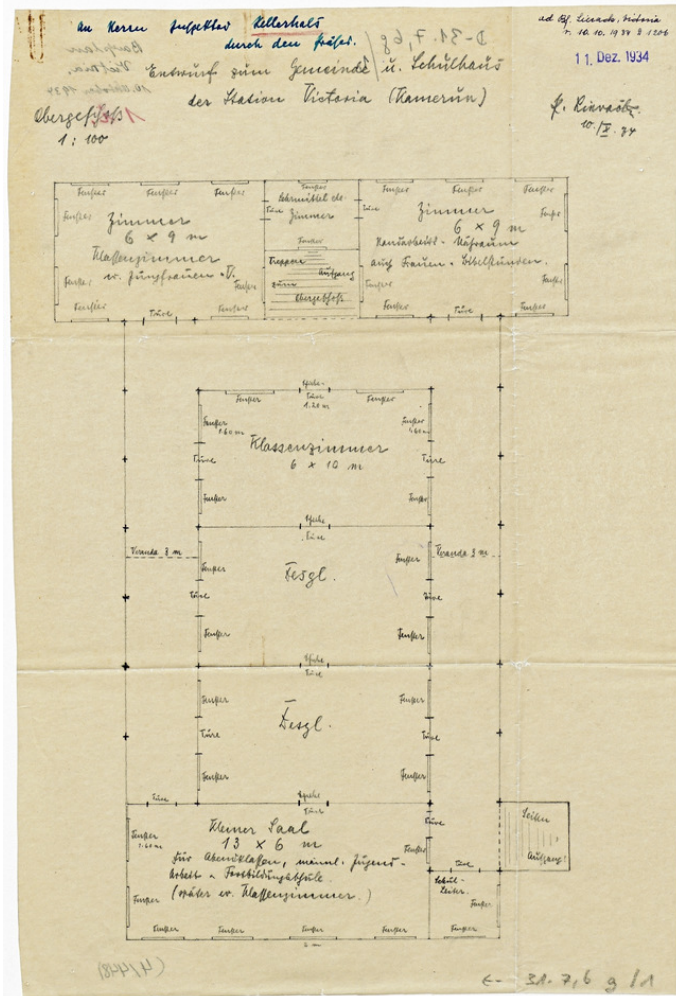 An Herrn Inspektor Kellerhals
durch den Präses.
ad Bf. Lienack, Victoria
v. 10.10.1934 § 1206
11. Dez. 1934
D-31.7,6g
Entwurf zum Gemeinde u. Schulhaus
der Station Victoria (Kamerun)
Bauplan
Victoria,
1934
10./X.34
Obergeschoß
1 : 100
Fenster Fenster Fenster
Zimmer
6 x 9 m
Klassenzimmer
u. Jungfrauen-V.
Fenster
Fenster
Fenster
Fenster Türe Fenster
Fenster
Lehrmittel etc.
Türe Zimmer Türe
Fenster
Treppen
Aufgang
zum
Obergeschoß
Fenster Fenster Fenster
Zimmer
6 x 9 m
Handarbeits- Nähraum
auch Frauen-Bibelstunden.
Fenster
Fenster
Fenster
Fenster Türe Fenster
Fenster Türe Fenster
1.20 m
Fenster
1.60 m
Fenster
1.60 m
Klassenzimmer
6 x 10 m
Türe Türe
Fenster Fenster
Türe
Veranda 3 m Veranda 3 m
Fenster Fenster
Desgl.
Türe Türe
Fenster Fenster
Türe
Fenster Fenster
Desgl.
Türe Türe
Fenster Fenster
Türe
Türe
Kleiner Saal
13 x 6 m
für Abendklassen, männl. Jugend-
Arbeit u. Fortbildungsschule.
(später ev. Klassenzimmer.)
Fenster
1.60 m
Fenster
Türe
Fenster
Türe
Seiten
Aufgang
Schul-
Leiter.
Fenster
Fenster Fenster Fenster Fenster Fenster
(4/448)
← 31.7,6 g /1